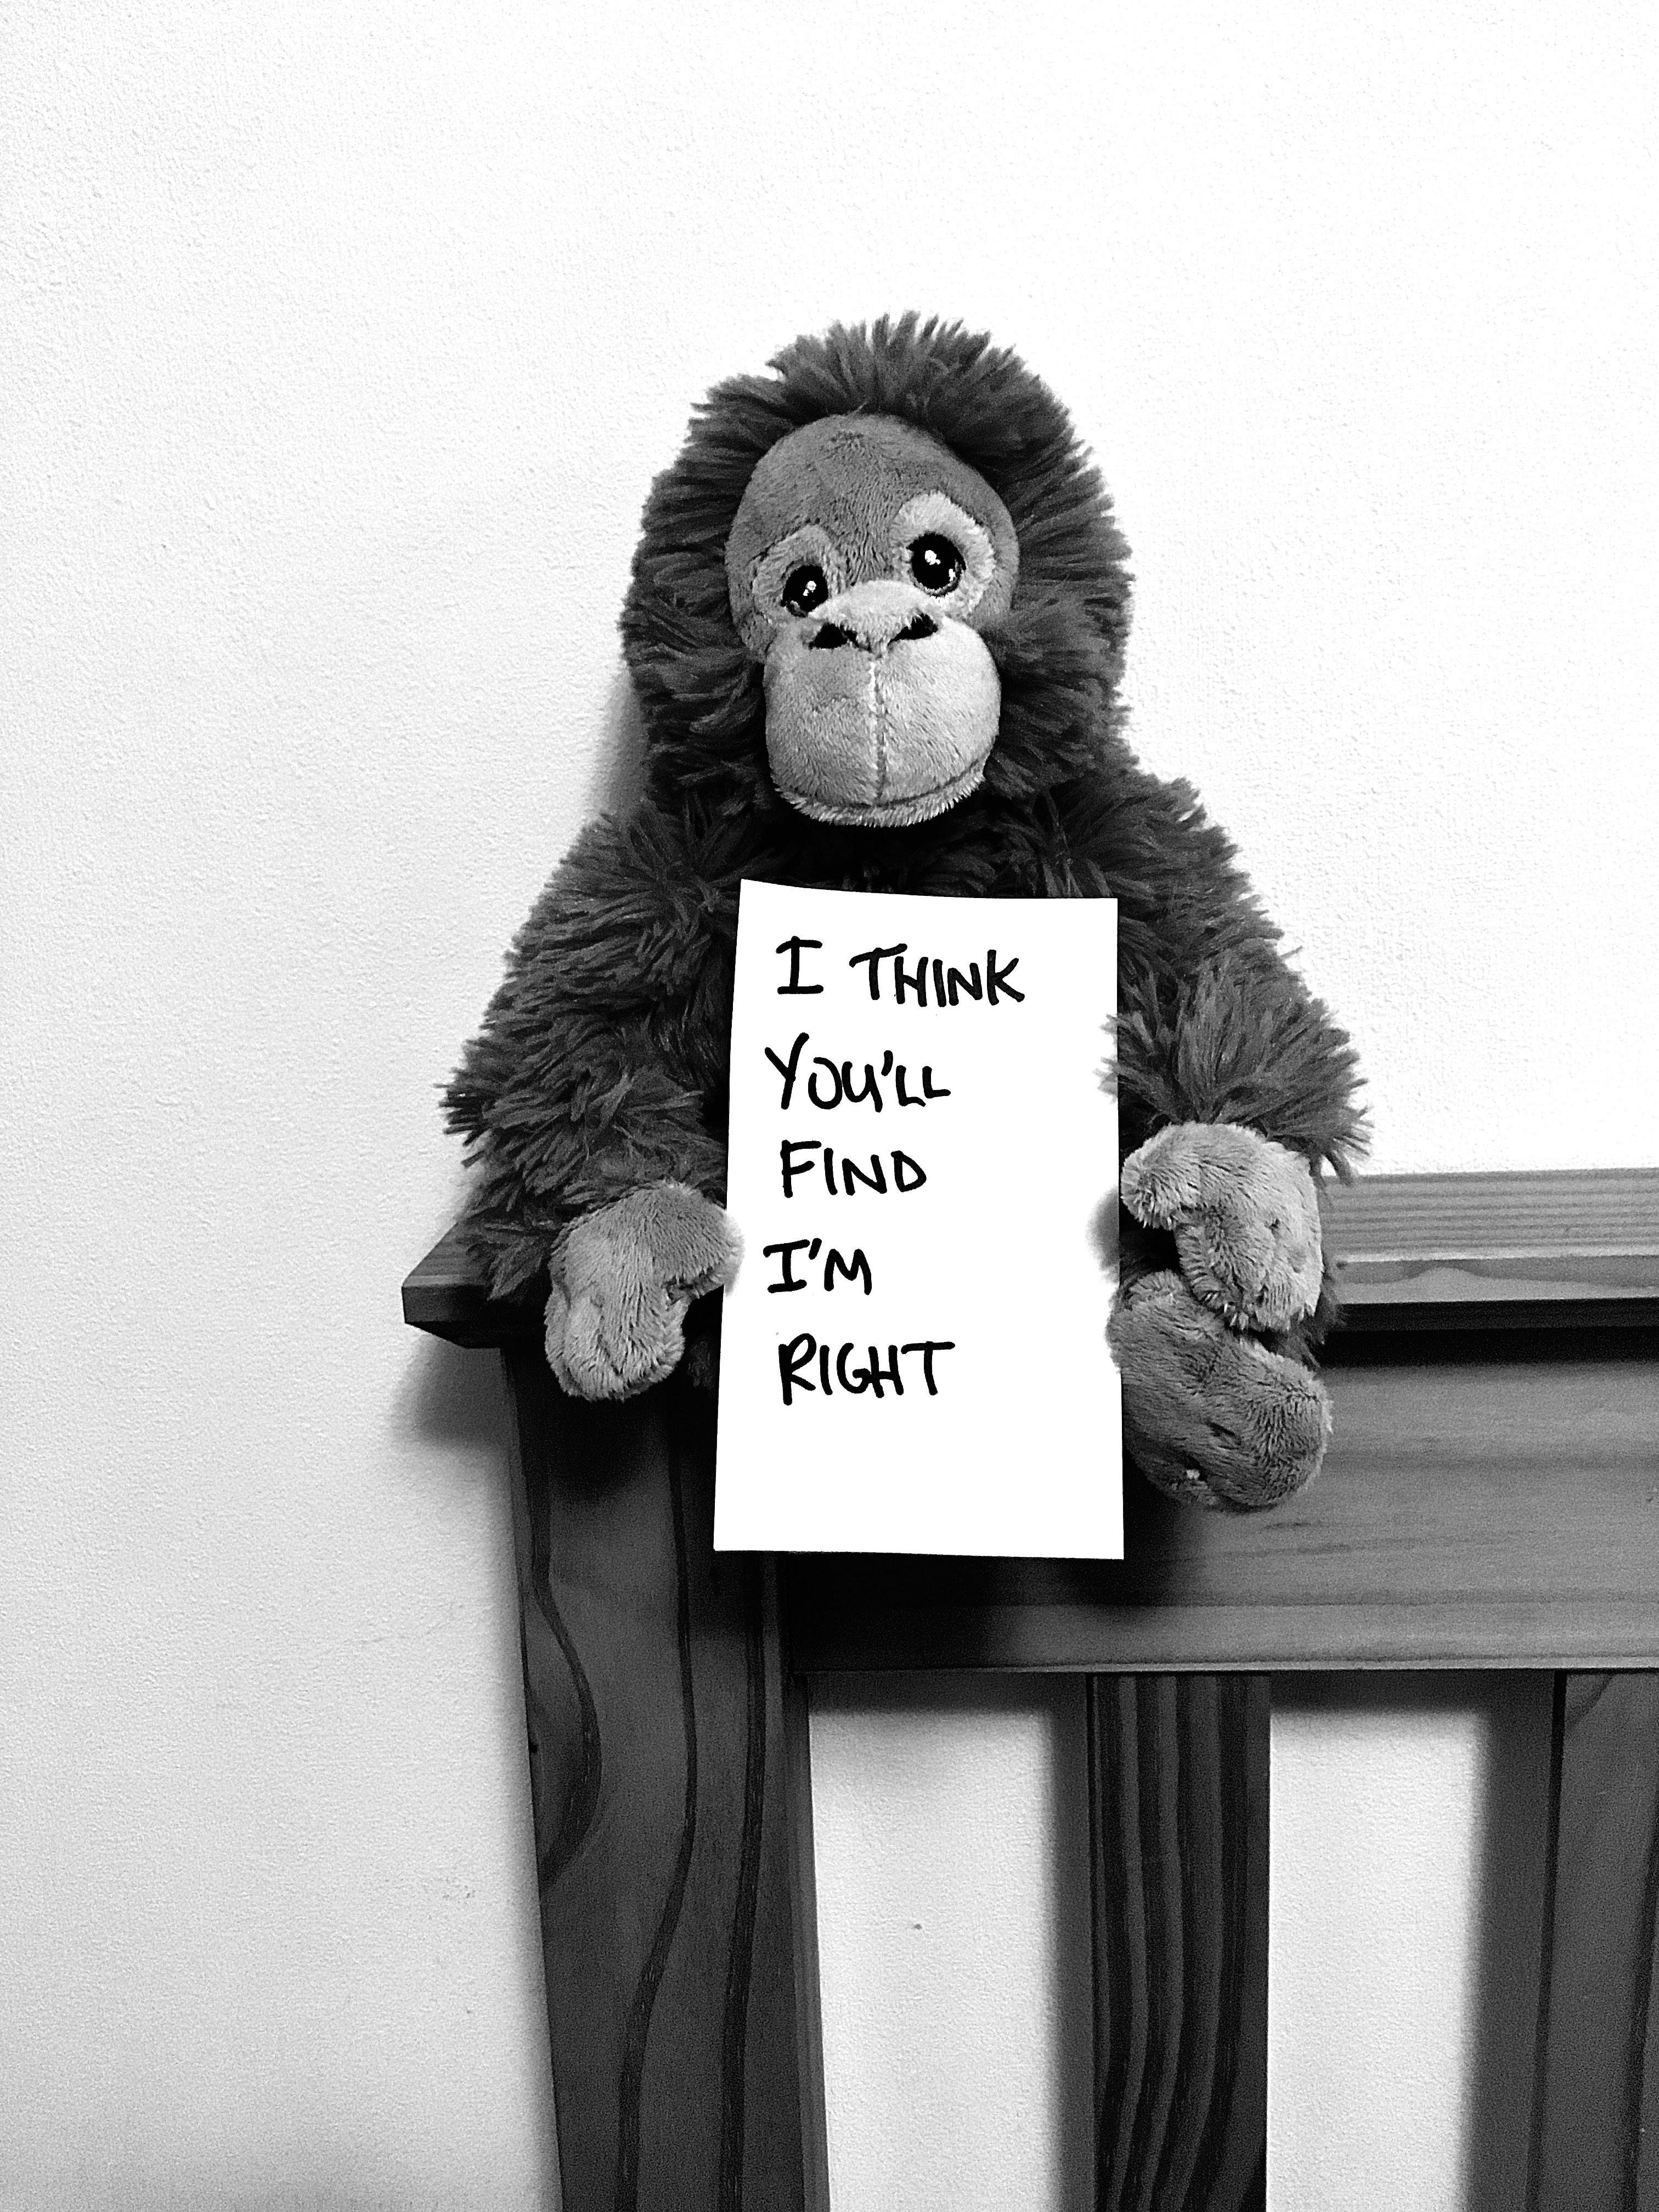 I THINK
YOU'LL
FIND
I'M
RIGHT